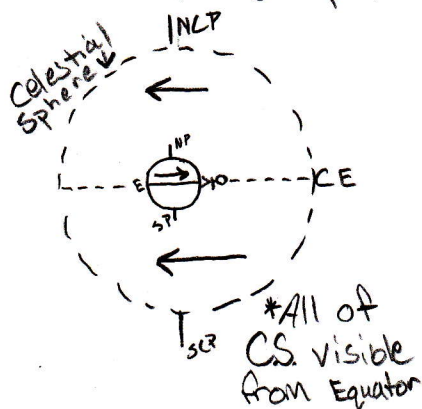 NCP
Celestial
Sphere
NP
E
CE
SP
SCP
*All of
C.S. visible
from Equator